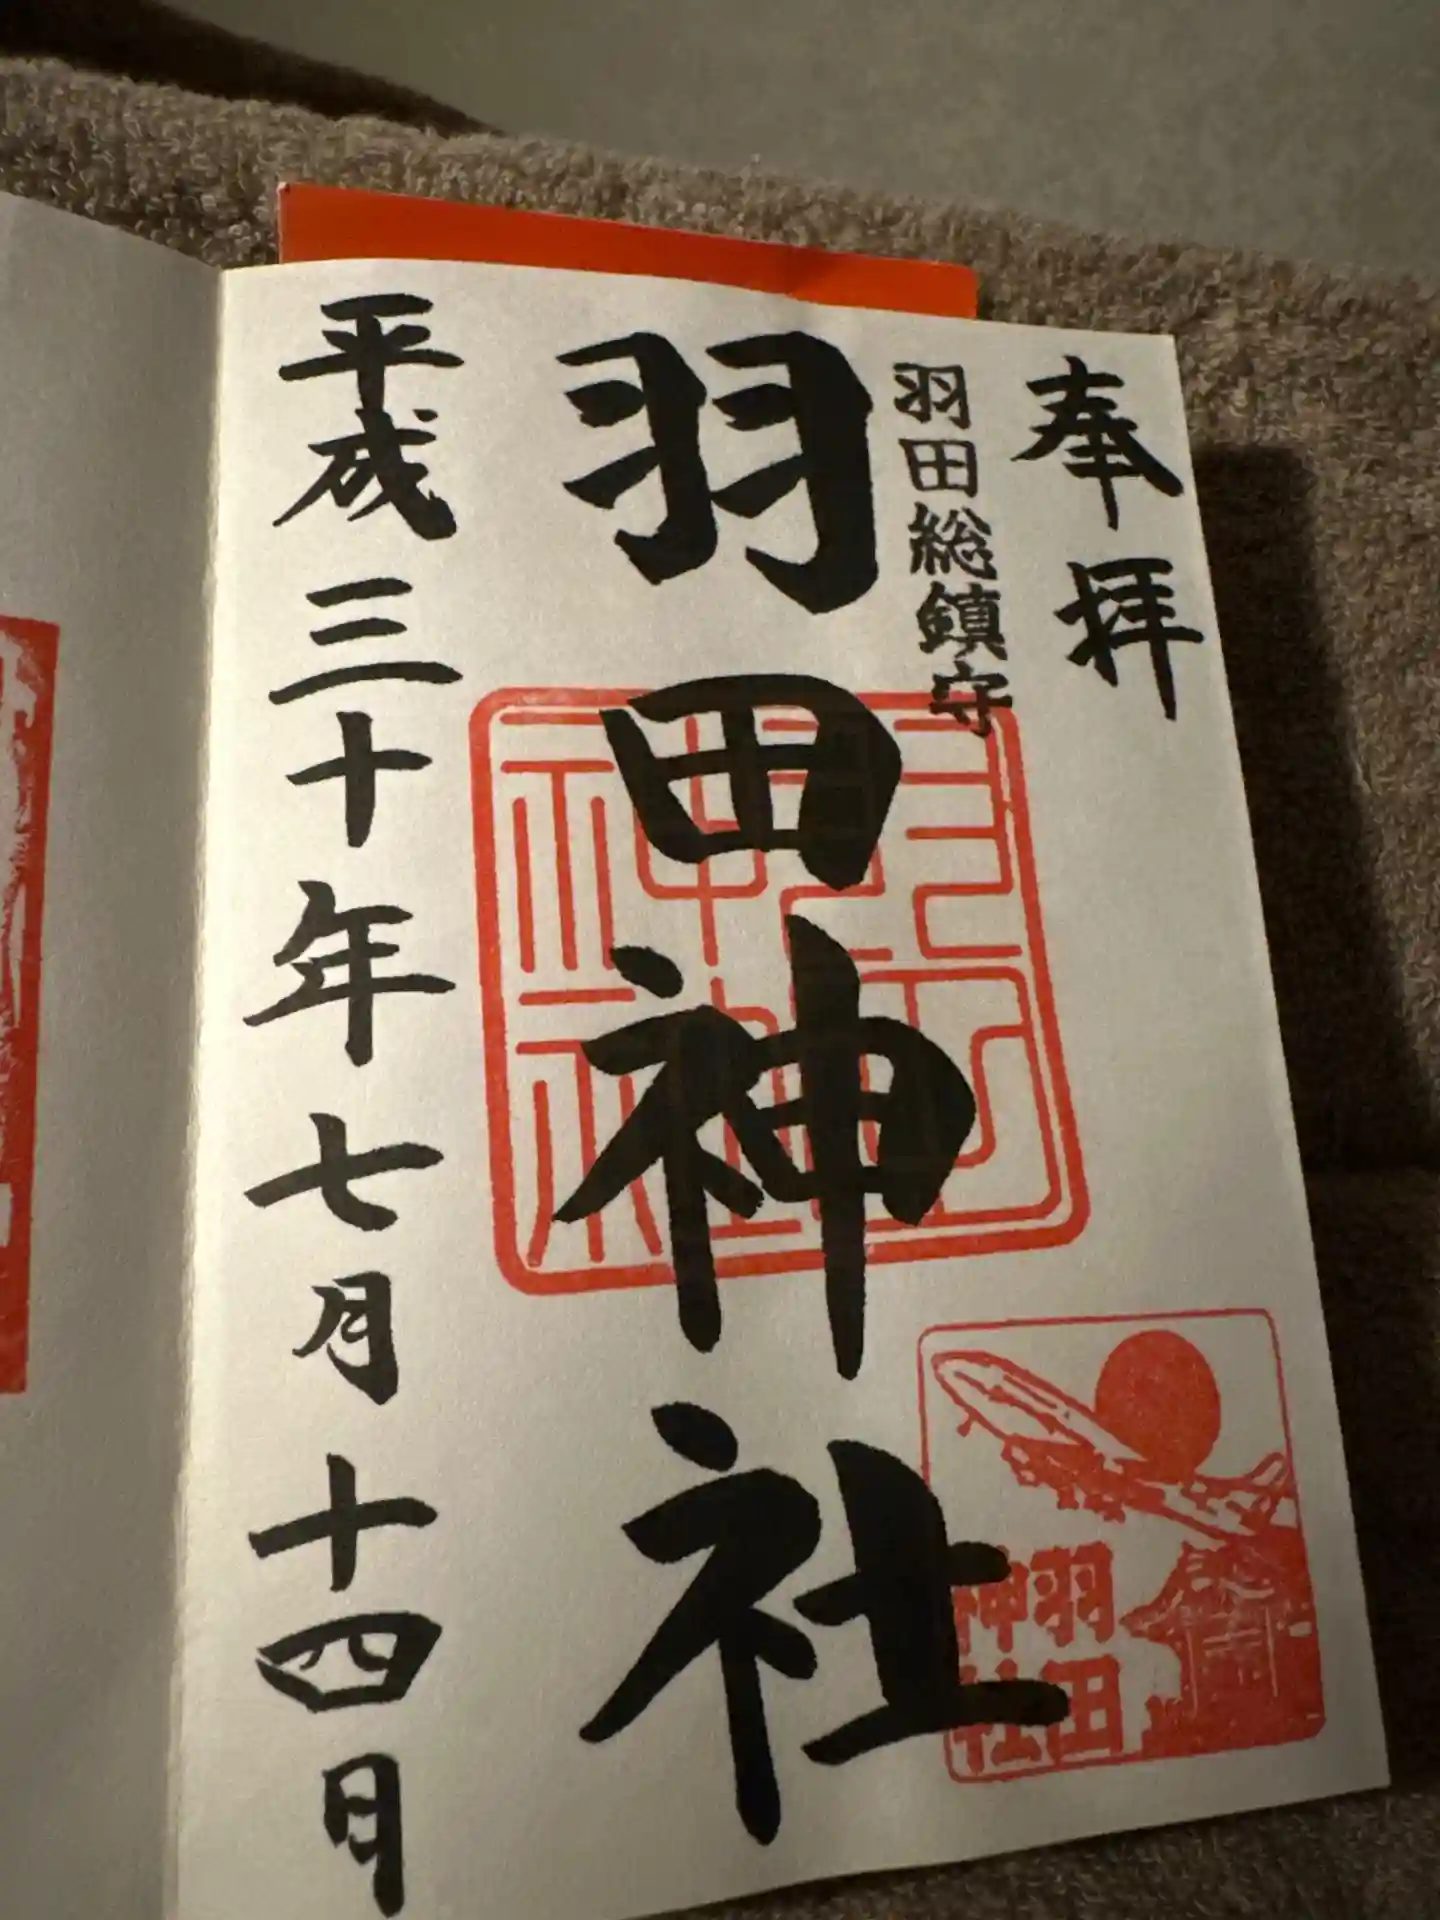 奉拝
羽田総鎮守
羽田神社
平成三十年七月十四日
羽田
神社